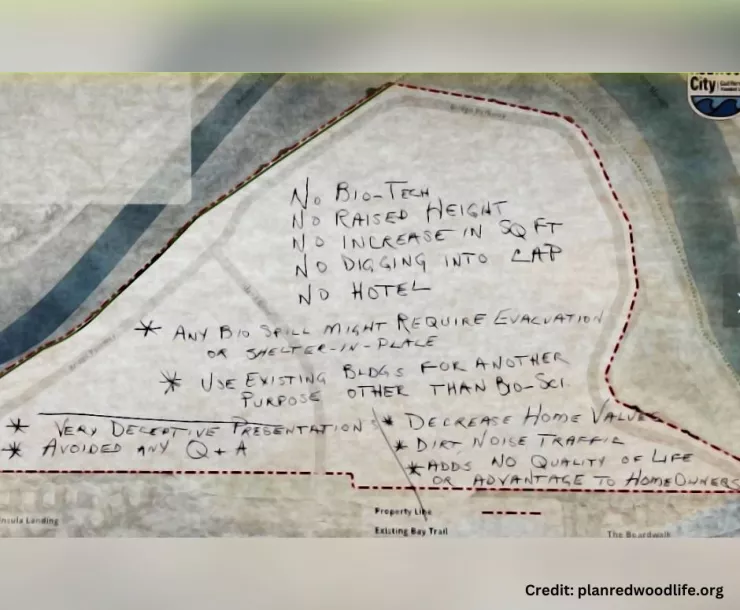 City
NO BIO-TECH
NO RAISED HEIGHT
NO INCREASE IN SQ FT
NO DIGGING INTO CAP
NO HOTEL
* ANY BIO SPILL MIGHT REQUIRE EVACUATION
OR SHELTER-IN-PLACE
* USE EXISTING BLDGS FOR ANOTHER
PURPOSE OTHER THAN BIO-SCI.
* VERY DECEPTIVE PRESENTATION
* AVOIDED ANY Q + A
* DECREASE HOME VALUES
* DIRT, NOISE TRAFFIC
* ADDS NO QUALITY OF LIFE
OR ADVANTAGE TO HOMEOWNERS
Property Line
Existing Bay Trail
nsula Landing
The Boardwalk
Credit: planredwoodlife.org